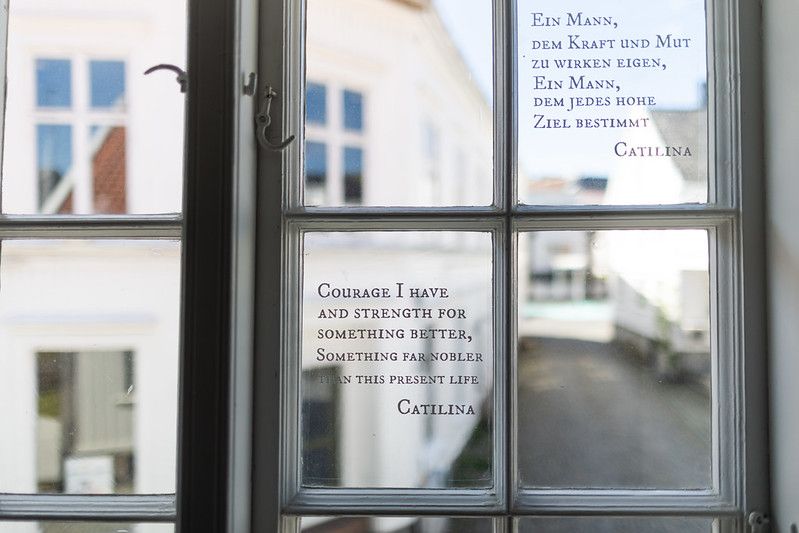 Ein Mann,
dem Kraft und Mut
zu wirken eigen,
Ein Mann,
dem jedes hohe
Ziel bestimmt
Catilina
Courage I have
and strength for
something better,
Something far nobler
than this present life
Catilina